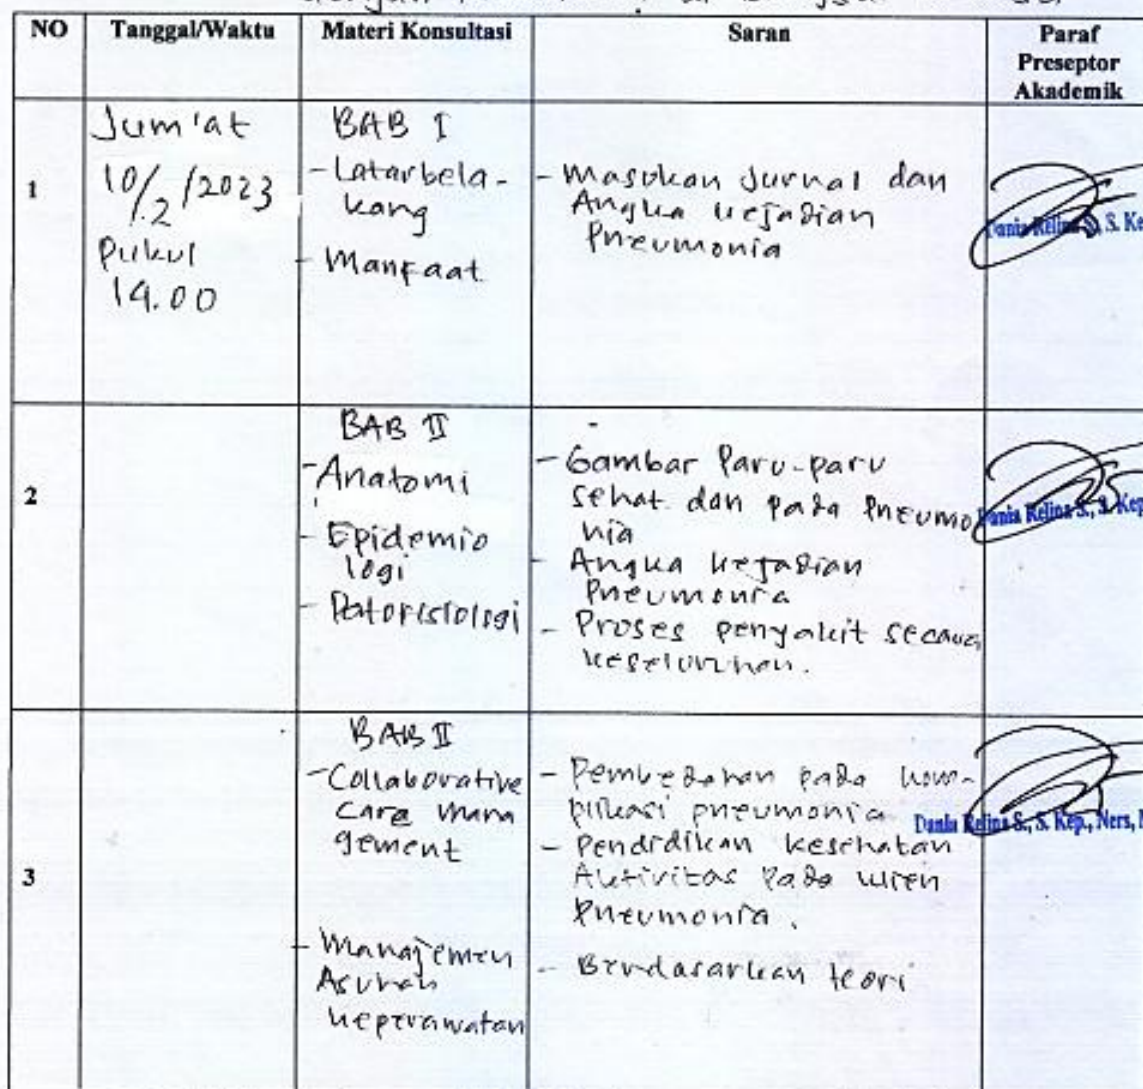 NO Tanggal/Waktu Materi Konsultasi Saran Paraf
Preseptor
Akademik
1
Jum'at
10/2/2023
Pukul
14.00
BAB I
- Latarbela-
kang
- Manfaat
- Masukan Jurnal dan
Angka kejadian
Pneumonia
Dania Relina S., S. Ke
2
BAB II
- Anatomi
- Epidemio
logi
- Patofisiologi
- Gambar Paru-paru
sehat dan pada Pneumo
nia
- Angka kejadian
Pneumonia
- Proses penyakit secara
keseluruhan.
Dania Relina S., S. Kep
3
BAB II
- Collaborative
Care mana
gement
- Manajemen
Asuhan
keperawatan
- Pembedahan pada kom-
plikasi pneumonia
- Pendidikan kesehatan
Aktivitas pada klien
Pneumonia.
- Berdasarkan teori
Dania Relina S., S. Kep., Ners,